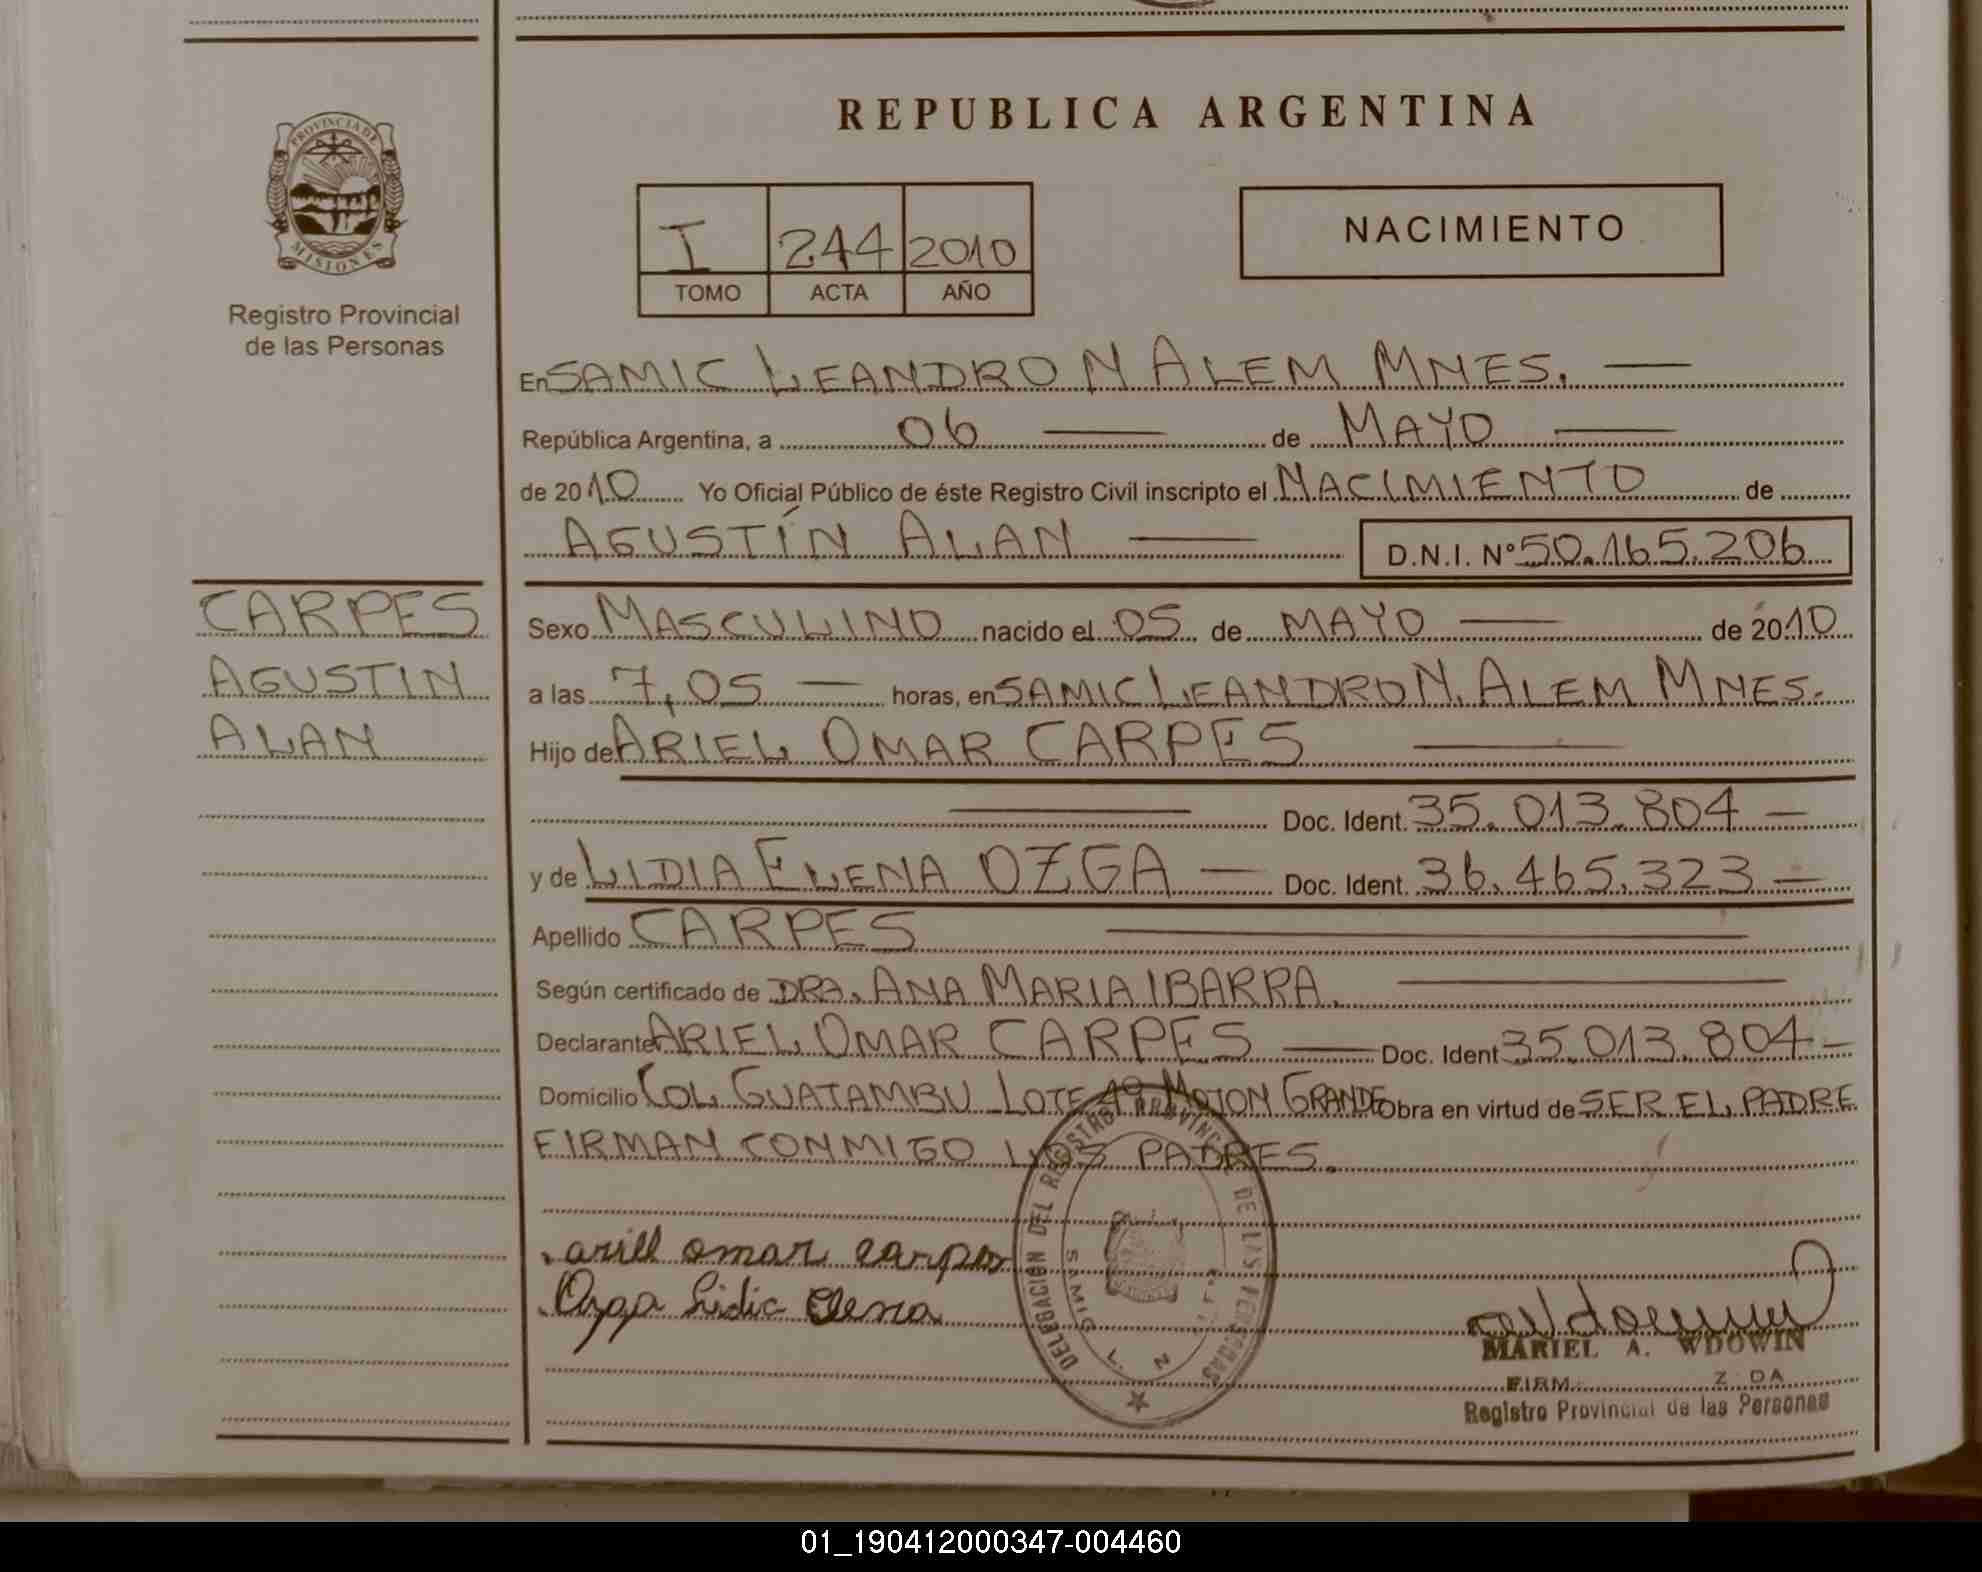 PROVINCIA DE
MISIONES
Registro Provincial
de las Personas
CARPES
AGUSTIN
ALAN
REPUBLICA ARGENTINA
I 244 2010
TOMO ACTA AÑO
NACIMIENTO
En SAMIC LEANDRO N ALEM MNES. —
República Argentina, a 06 — de MAYO —
de 2010 Yo Oficial Público de éste Registro Civil inscripto el NACIMIENTO de
AGUSTÍN ALAN — D.N.I. Nº 50.165.206
Sexo MASCULINO nacido el 05 de MAYO — de 2010
a las 7,05 — horas, en SAMIC LEANDRO N. ALEM MNES.
Hijo de ARIEL OMAR CARPES —
— Doc. Ident. 35.013.804 —
y de LIDIA ELENA OZGA — Doc. Ident. 36.465.323 —
Apellido CARPES —
Según certificado de DRA. ANA MARIA IBARRA. —
Declarante ARIEL OMAR CARPES — Doc. Ident 35.013.804 —
Domicilio COL GUATAMBU LOTE 49 MOJON GRANDE Obra en virtud de SER EL PADRE
FIRMAN CONMIGO LOS PADRES.
ariel omar carpes
Ozga Lidia Elena
DELEGACION DEL REGISTRO PROVINC DE LAS PERSONAS
SAMIC L. N
MARIEL A. WDOWIN
Registro Provincial de las Personas
01_190412000347-004460